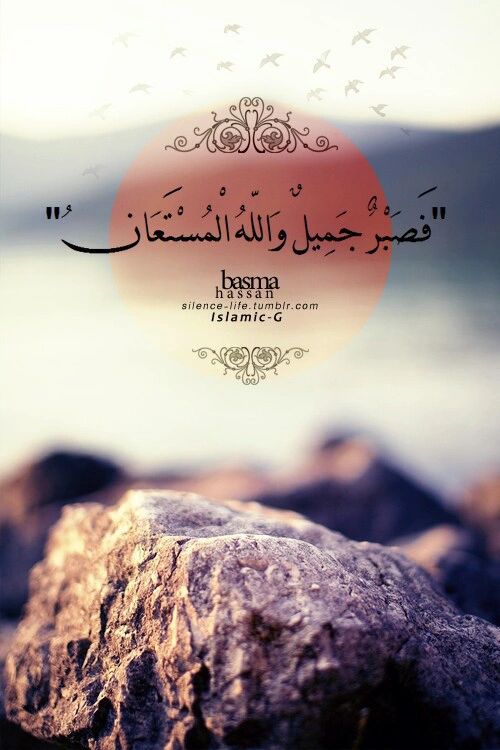 "فَصَبْرٌ جَمِيلٌ وَاللّهُ الْمُسْتَعَانُ"
basma
hassan
silence-life.tumblr.com
Islamic-G